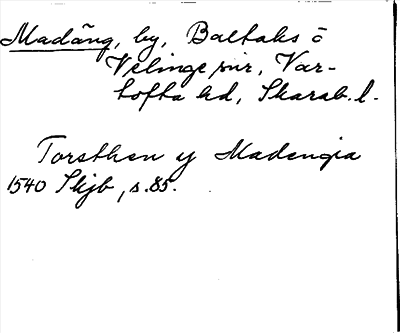 Madäng, by, Baltaks ö
Velinge snr, Var-
tofta hd, Skarab. l.
Torsthen y Madengia
1540 Skjb, s. 85.